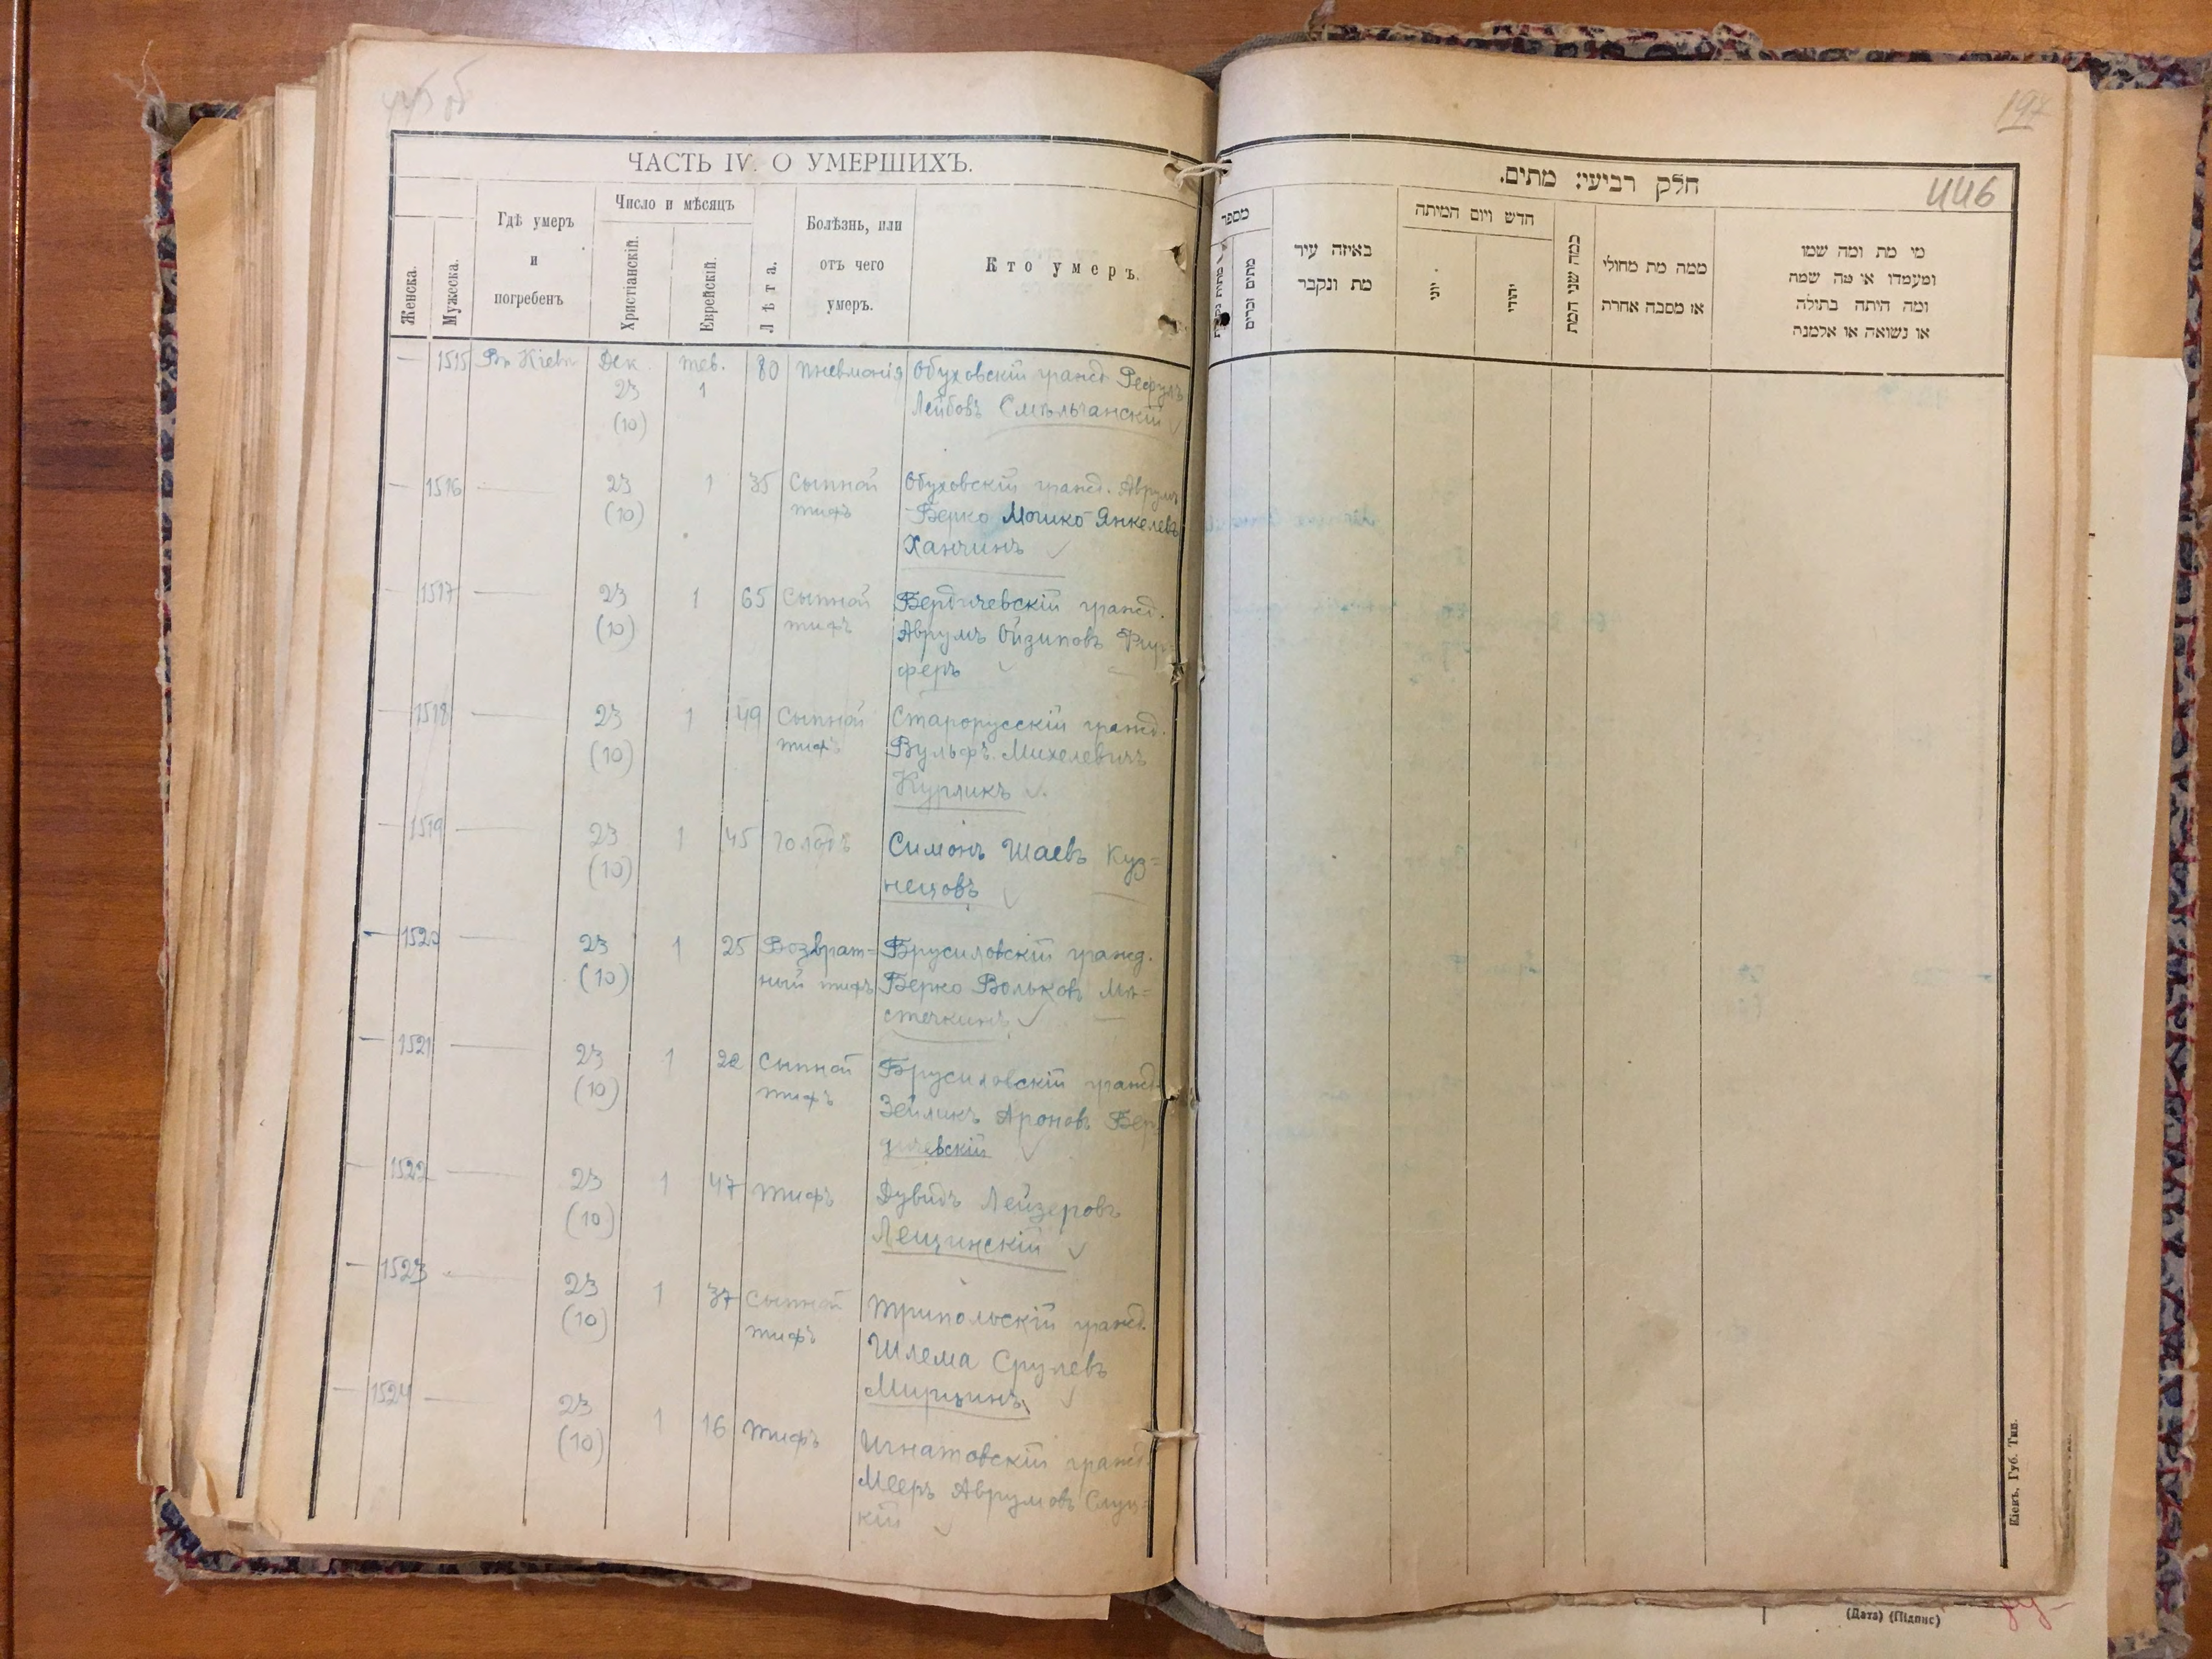 ЧАСТЬ IV. О УМЕРШИХЪ.
Женска.
Мужеска.
Гдѣ умеръ
и
погребенъ
Число и мѣсяцъ
Христіанскій.
Еврейскій.
Лѣта.
Болѣзнь, или
отъ чего
умеръ.
Кто умеръ.
— 1515 Въ Кіевѣ Дек. тев. 80 пневмонія Обуховскій гражд.
23 1
(10) Лейбовъ Смѣльчанскій
— 1516 — 23 1 35 Сыпной Обуховскій гражд. Аврумъ
(10) тифъ Берко Мошко-Янкелевъ
Ханчинъ
— 1517 — 23 1 65 Сыпной Бердичевскій гражд.
(10) тифъ Аврумъ Ойзиповъ
феръ
— 1518 — 23 1 49 Сыпной Старорусскій гражд.
(10) тифъ Вульфъ Михелевичъ
Курликъ
— 1519 — 23 1 45 голодъ Симонъ Шаевъ Куз=
(10) нецовъ
— 1520 — 23 1 25 Возврат= Брусиловскій гражд.
(10) ный тифъ Берко Вольковъ Мѣ=
стечкинъ
— 1521 — 23 1 22 Сыпной Брусиловскій гражд.
(10) тифъ Зейликъ Ароновъ Бер
дичевскій
— 1522 — 23 1 47 тифъ Дувидъ Лейзеровъ
(10) Лещинскій
— 1523 — 23 1 37 Сыпной Трипольскій гражд.
(10) тифъ Шлема Срулевъ
Мирцинъ
— 1524 — 23 1 16 тифъ Игнатовскій гражд.
(10) Мееръ Аврумовъ Слуц=
кій
197
446
חלק רביעי: מתים.
מספר
מתים זכרים
באיזה עיר
מת ונקבר
חדש ויום המיתה
יוני
יהודי
כמה שני המת
ממה מת מחולי
או מסבה אחרת
מי מת ומה שמו
ומעמדו או מה שמה
ומה היתה בתולה
או נשואה או אלמנה
Кіевъ, Губ. Тип.
(Дата) (Підпис)